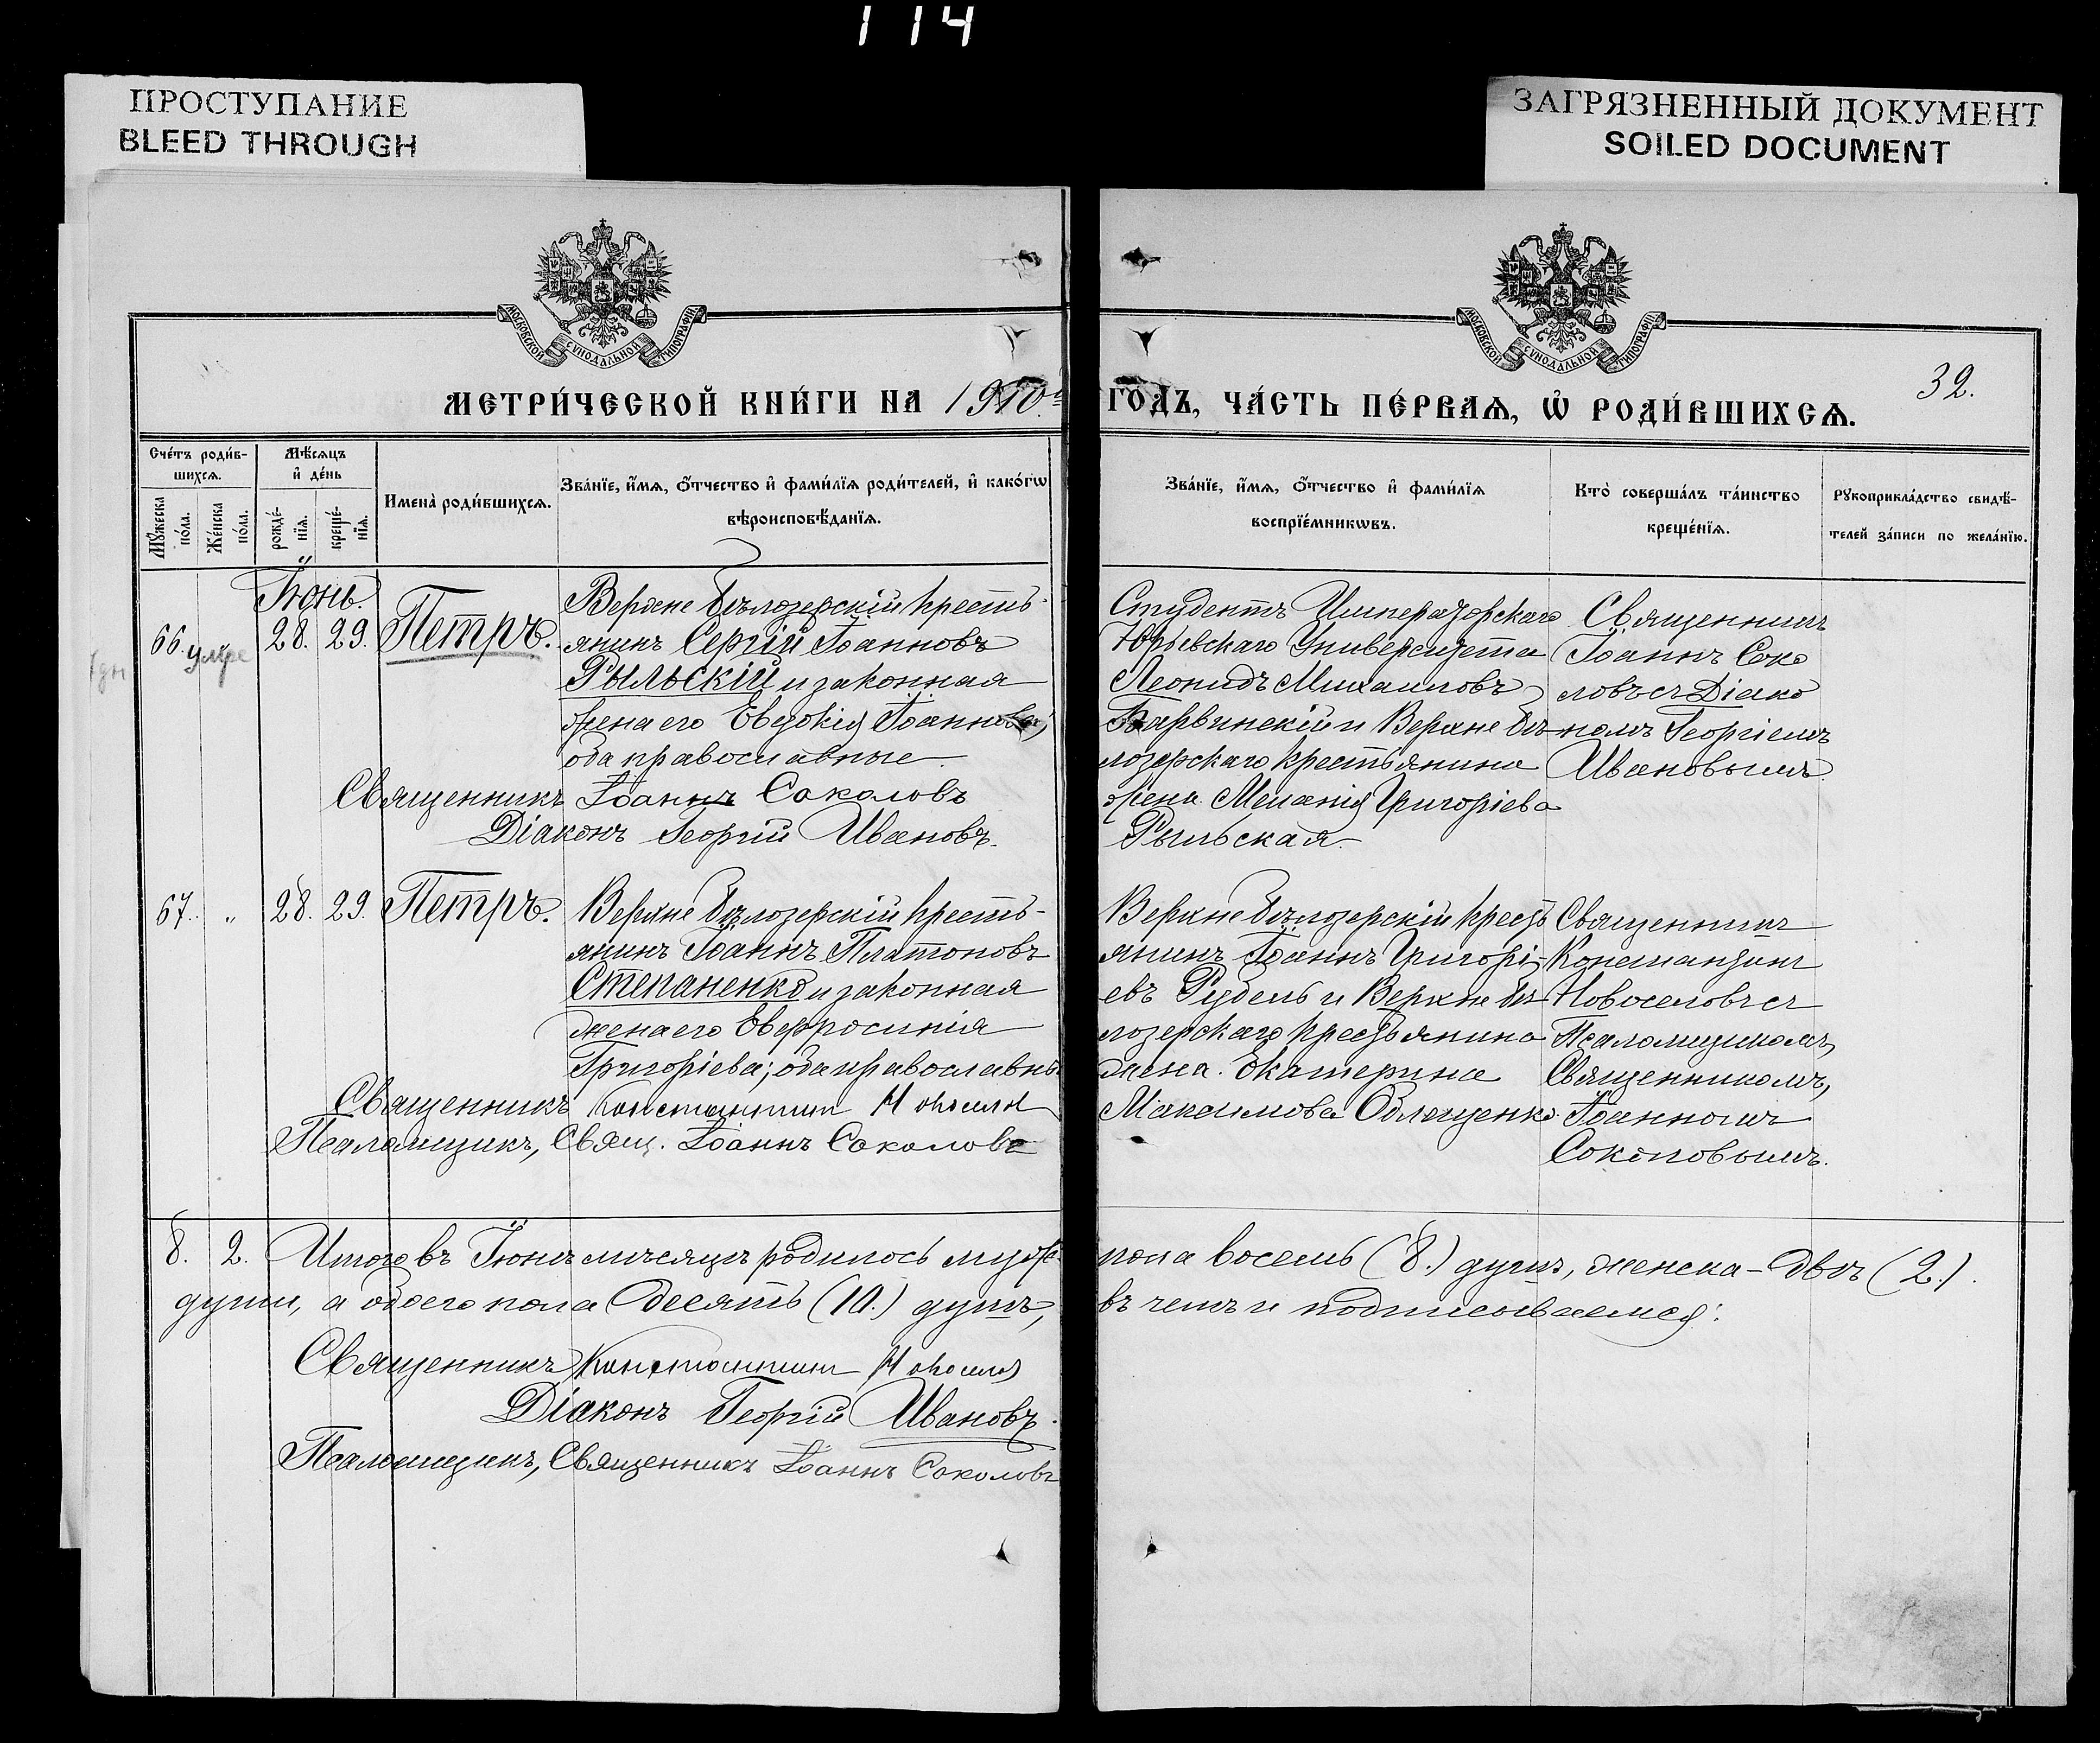 114
ПРОСТУПАНИЕ
BLEED THROUGH
ЗАГРЯЗНЕННЫЙ ДОКУМЕНТ
SOILED DOCUMENT
МОСКОВСКОЙ СУНОДАЛЬНОЙ ТИПОГРАФІИ
МОСКОВСКОЙ СУНОДАЛЬНОЙ ТИПОГРАФІИ
32.
МЕТРИ́ЧЕСКОЙ КНИ́ГИ НА 1910 ГО́ДЪ, ЧА́СТЬ ПЕ́РВАѦ, Ѡ҆ РОДИ́ВШИХСѦ.
Сче́тъ роди́в-
шихсѧ.
Мѣ́сѧцъ
и҆ де́нь
Мꙋ́жеска
по́ла.
Же́нска
по́ла.
рожде́-
нїѧ.
креще́-
нїѧ.
Имена̀ роди́вшихсѧ.
Зва́нїе, и҆́мѧ, ѻ҆́тчество и҆ фами́лїѧ роди́телей, и҆ како́гѡ
вѣроисповѣ́данїѧ.
Зва́нїе, и҆́мѧ, ѻ҆́тчество и҆ фами́лїѧ
воспрїе́мникѡвъ.
Кто̀ соверша́лъ та́инство
креще́нїѧ.
Рꙋкоприкла́дство свидѣ́-
телей за́писи по жела́нїю.
Іюнь.
66. умре 28. 29. Петръ.
Верхне Бѣлозерскій кресть-
янинъ Сергій Іоанновъ
Рыльскій и законная
жена его Евдокія Іоаннова;
оба православные.
Священникъ Іоаннъ Соколовъ
Діаконъ Георгій Ивановъ.
Студентъ Императорскаго
Юрьевскаго Университета
Леонидъ Михаиловъ
Барвинскій и Верхне Бѣ-
лозерскаго крестьянина
жена Меланія Григоріева
Рыльская.
Священникъ
Іоаннъ Соко
ловъ съ Діако
номъ Георгіемъ
Ивановымъ.
67. „ 28. 29. Петръ.
Верхне Бѣлозерскій кресть-
янинъ Іоаннъ Платоновъ
Степаненко и законная
жена его Евфросинія
Григоріева; оба православны
Священникъ Константинъ Новоселов
Псаломщикъ, Свящ. Іоаннъ Соколовъ
Верхне Бѣлозерскій кресть
янинъ Іоаннъ Григорі-
евъ Рудель и Верхне Бѣ-
лозерскаго крестьянина
жена Екатерина
Максимова Облещенко
Священникъ
Константинъ
Новоселовъ съ
Псаломщикомъ,
Священникомъ,
Іоанномъ
Соколовымъ.
8. 2. Итого въ Іюнѣ мѣсяцѣ родилось муж. пола восемь (8.) душъ, женска - двѣ (2.)
души, а обоего пола десять (10.) душъ, въ чемъ и подписываемся:
Священникъ Константинъ Новоселов
Діаконъ Георгій Ивановъ.
Псаломщикъ, Священникъ Іоаннъ Соколовъ